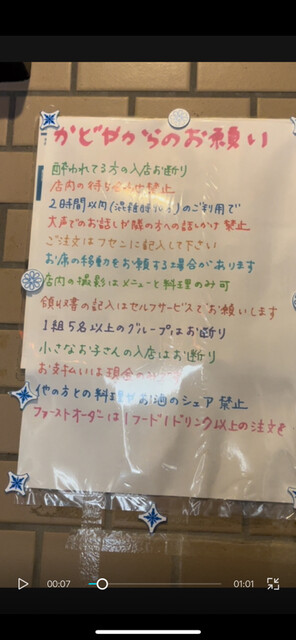 かどやからのお願い
酔われてる方の入店お断り
店内の待ち合わせ禁止
2時間以内(混雑時)のご利用で
大声でのお話しが隣の方への話しかけ禁止
ご注文はフセンに記入して下さい
お席の移動をお願する場合があります
店内の撮影はメニューと料理のみ可
領収書の記入はセルフサービスでお願いします
1組5名以上のグループはお断り
小さなお子さんの入店はお断り
お支払いは現金のみ
他の方との料理やお酒のシェア禁止
ファーストオーダーは1フード1ドリンク以上の注文を
00:07
01:01